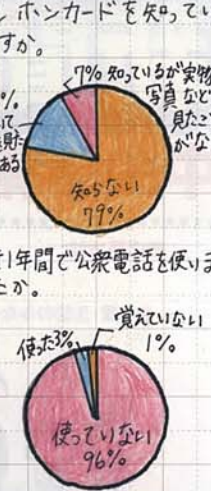 レホンカードを知ってい
すか。
7% 知っているが実物
写真など
見たこ
がな
%
て
見た
ある
知らない
79%
1年間で公衆電話を使いま
たか。
覚えていない
1%
使った3%
使っていない
96%